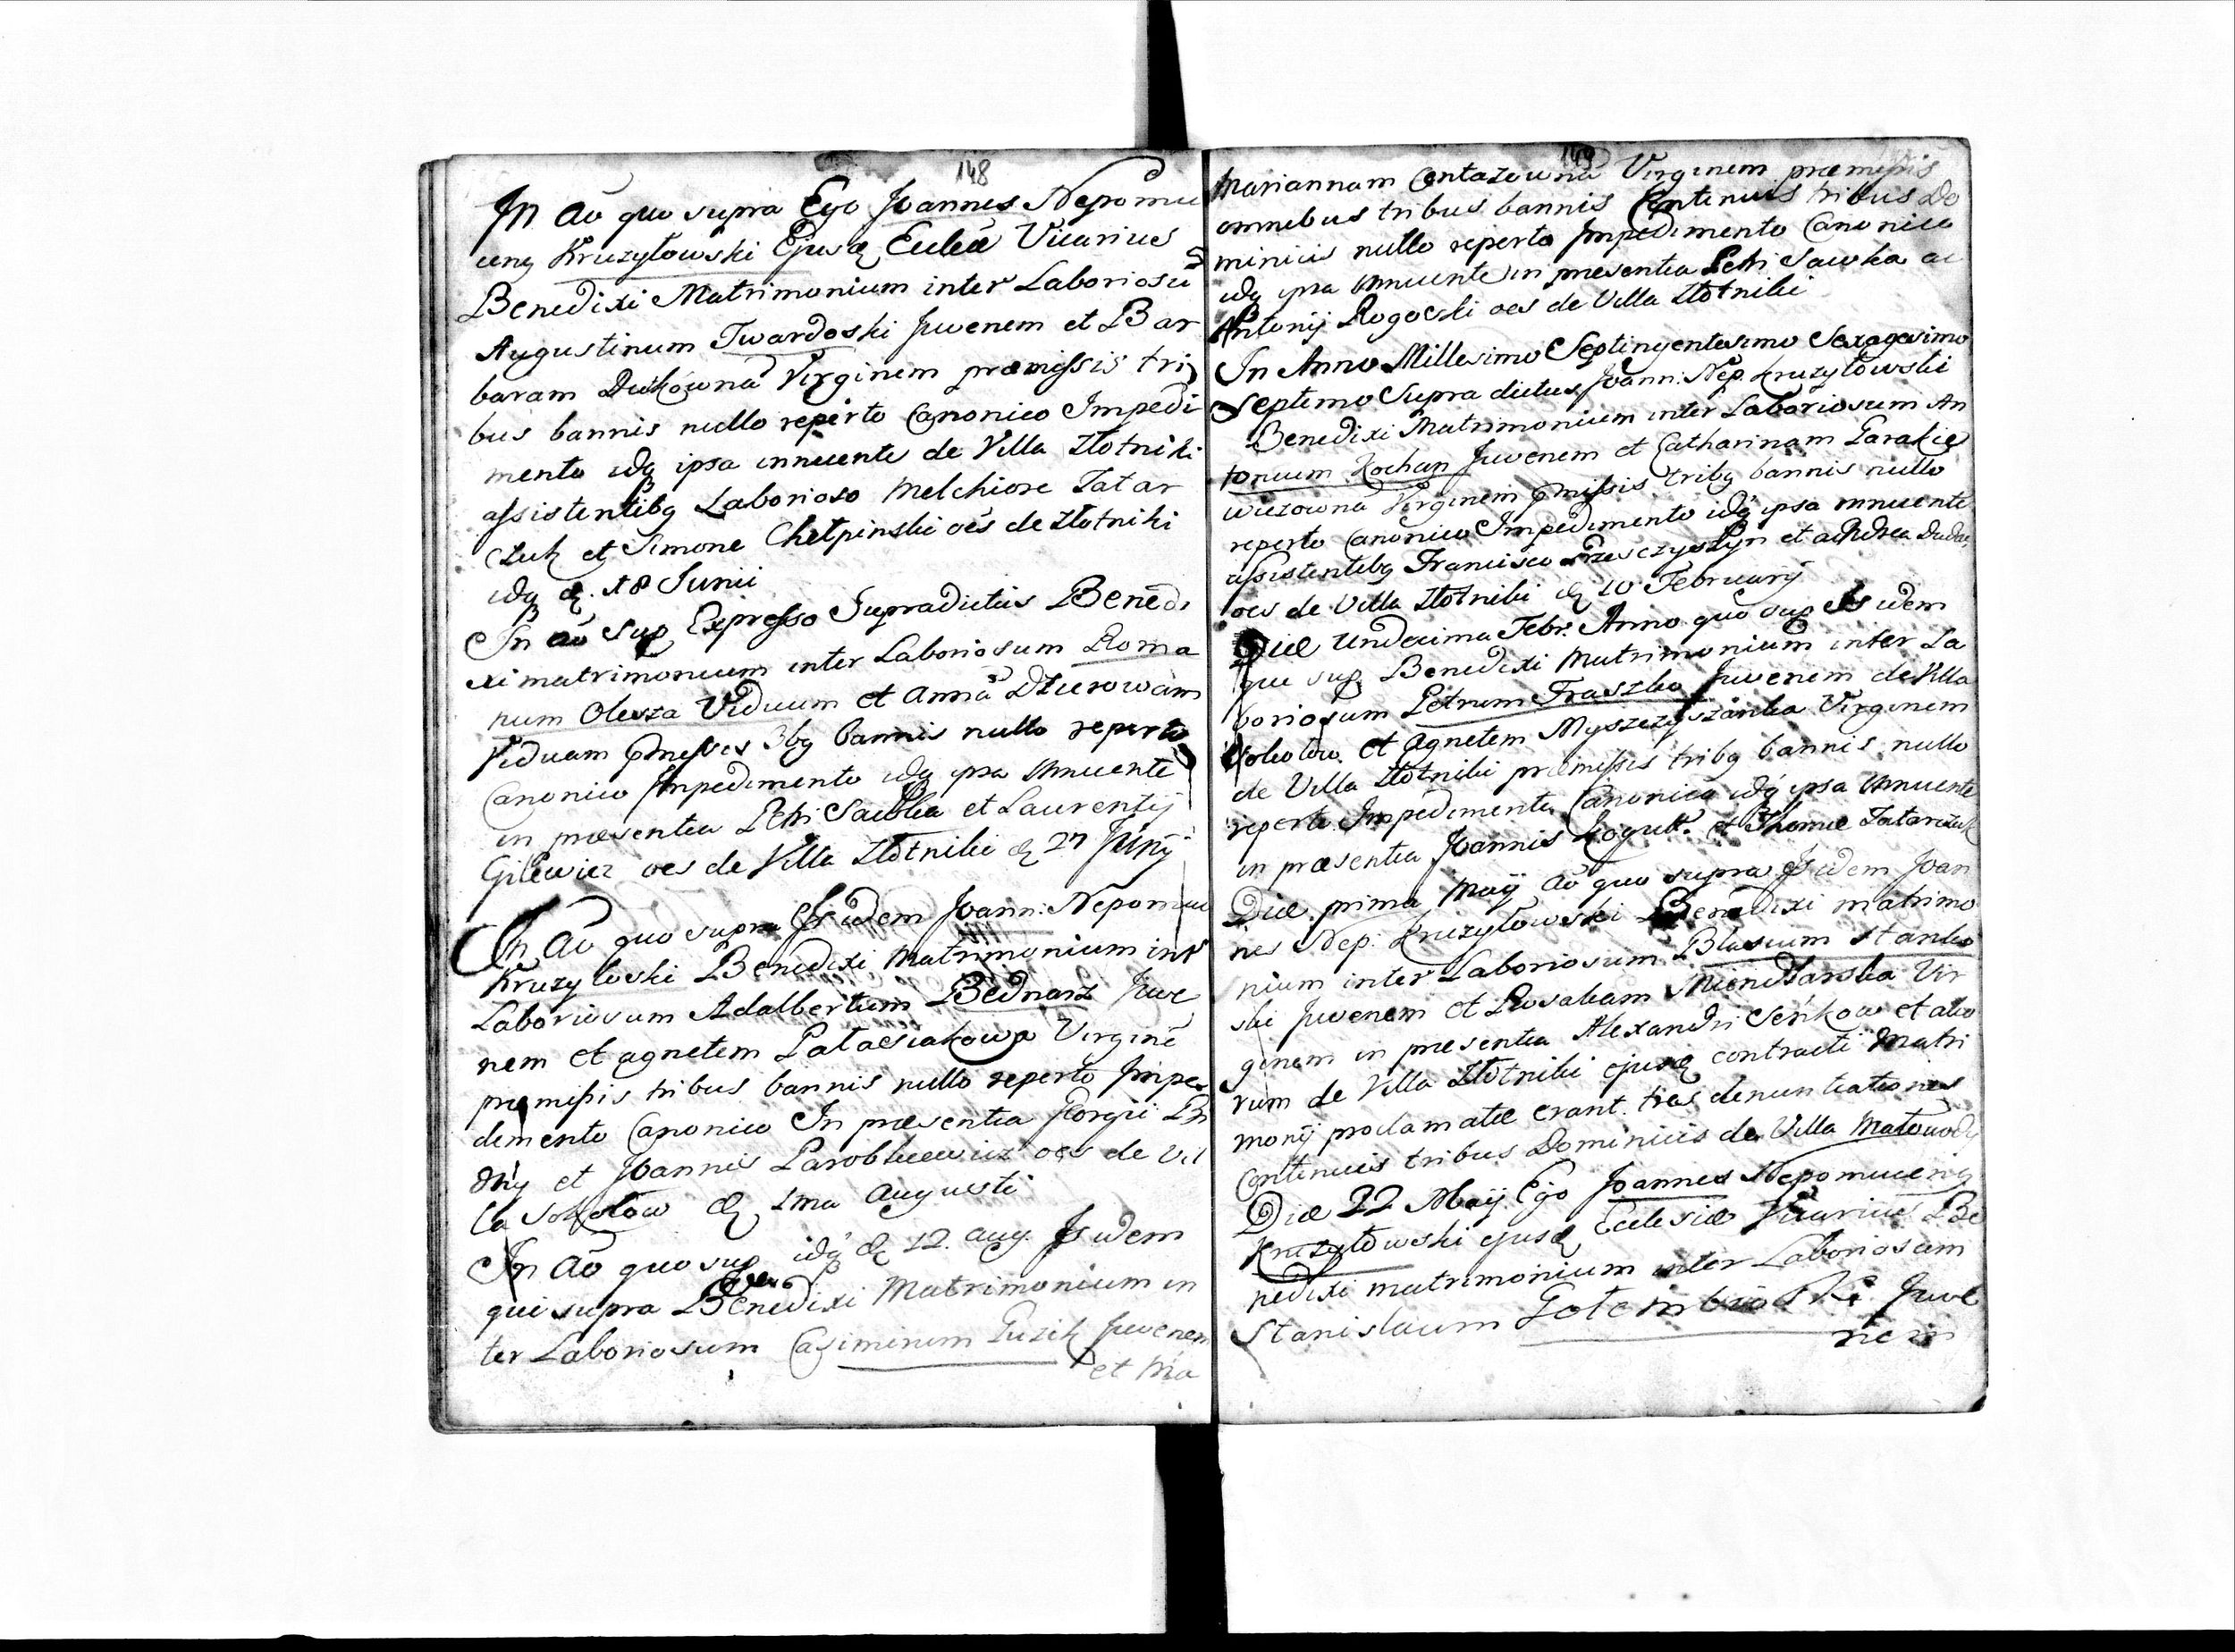 148
In Aõ quo supra Ego Joannes Nepomu
ceng Kruzyłowski Ejusd Eccleæ Vicarius
Benedixi Matrimonium inter Laboriosũ
Augustinum Twardoski Juvenem et Bar
baram Dutkówna Virginem præmissis tri
bus bannis nullo reperto Canonico Impedi
mento idq ipsa innuente de Villa Złotniki
assistentibg Laborioso Melchiore Tatar
czuk et Simone Chełpinski oẽs de Złotniki
idq d. 18 Junii
In aõ sup Expresso Supradictus Benedi
xi matrimonium inter Laboriosum Roma
num Olexza Viduum et Annã Dziurowam
Viduam pmissis 3bg bannis nullo reperto
Canonico Impedimento idq ipsa innuente
in præsentia Petri Sawka et Laurentij
Gilewicz oes de Villa Złotniki d 27 Junij
In Aõ quo supra Isdem Joann: Nepomuc
Kruzyłoski Benedixi Matrimonium int
Laboriosum Adalbertum Bednarz Juve
nem et agnetem Patasiakowa Virginẽ
præmissis tribus bannis nullo reperto Impe
dimento Canonico In præsentia Georgii
et Joannis Parobkiewicz oes de Vil
la Sokołow d 1ma Augusti
In Aõ quo sup idq d 12. aug. Isdem
qui supra Benedixi Matrimonium in
ter Laboriosum Casimirum Guzik Juvenem
et Ma
149
Mariannam Centazowna Virginem præmissis
omnebus tribus bannis Continuis tribus Do
minicis nullo reperto Impedimento Canonico
idq ipsa innuente in præsentia Petri Sawka ac
Antonij Rogocki oes de Villa Złotniki
In Anno Millesimo Septingentesimo Sexagesimo
Septimo Supra dictus Joann: Nep. Kruzyłowski
Benedixi Matrimonium inter Laboriosum An
tonium Kochan Juvenem et Catharinam Garakie
wiczowna Virginem pmissis tribg bannis nullo
reperto Canonico Impedimento idq ipsa innuente
assistentibg Francisco et Andrea
oes de Villa Złotniki d 10 February
Die Undecima Febr. Anno quo sup Isdem
qui sup. Benedixi Matrimonium inter La
boriosum Petrum Fraszka Juvenem de Villa
Sokołow. et Agnetem Myszczyszanka Virginem
de Villa Złotniki præmissis tribg bannis nullo
reperto Impedimento Canonico idq ipsa innuente
in præsentia Joannis Kogutt. et Thomæ Tatarczuk
Die prima Maÿ aõ quo supra Isdem Joan
nes Nep: Kruzyłowski Benedixi matrimo
nium inter Laboriosum Blasium Stanko
ski Juvenem et Rusaliam Vir
ginem in præsentia Alexandri Seńkow et alio
rum de Villa Złotniki ejusq contracti Matri
monij proclamatæ erant tres denuntiationes
Continuis tribus Dominicis de Villa Matowody
Die 22 Maÿ Ego Joannes Nepomuceng
Kruzyłowski ejusd Ecclesiæ Vicarius Be
nedixi matrimonium inter Laboriosum
Stanislaum Gołembioski Juve
nem